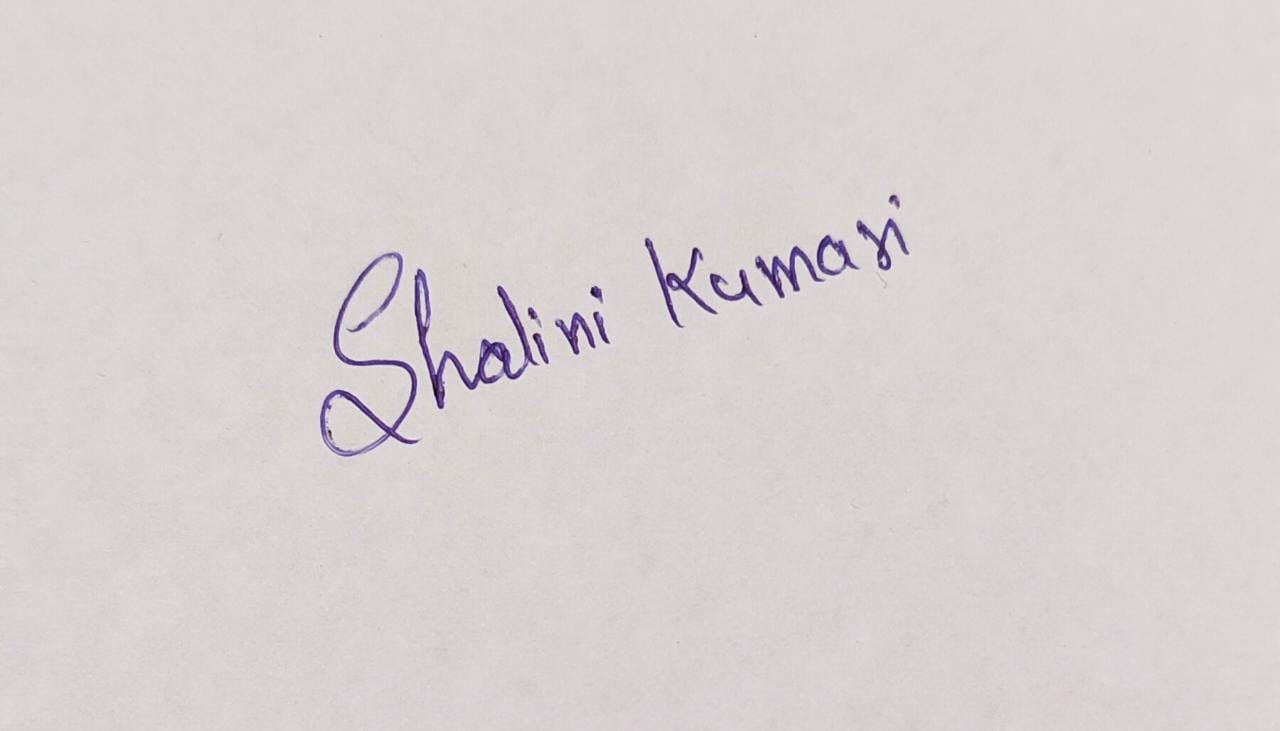 Shalini Kumari